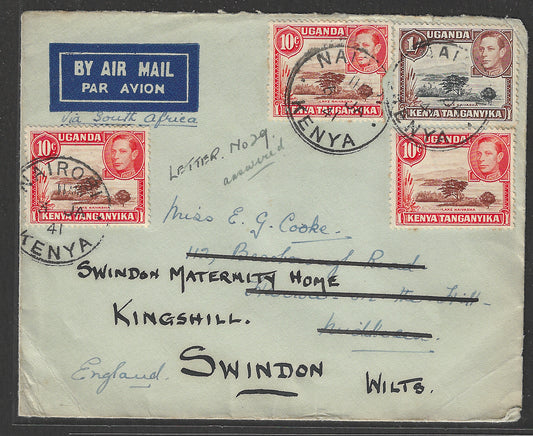 BY AIR MAIL
PAR AVION
Via South Africa
UGANDA
10c
LAKE NAIVASHA
KENYA TANGANYIKA
NAI
KENYA
UGANDA
1/-
KENYA TANGANYIKA
NAI
KENYA
UGANDA
10c
KENYA TANGANYIKA
1
NAIRO
41
KENYA
UGANDA
10c
LAKE NAIVASHA
KENYA TANGANYIKA
1
LETTER. No 29.
answered
Miss E. G. Cooke.
Road
SWINDON MATERNITY HOME
on the Hill
KINGSHILL.
SWINDON
England.
WILTS.